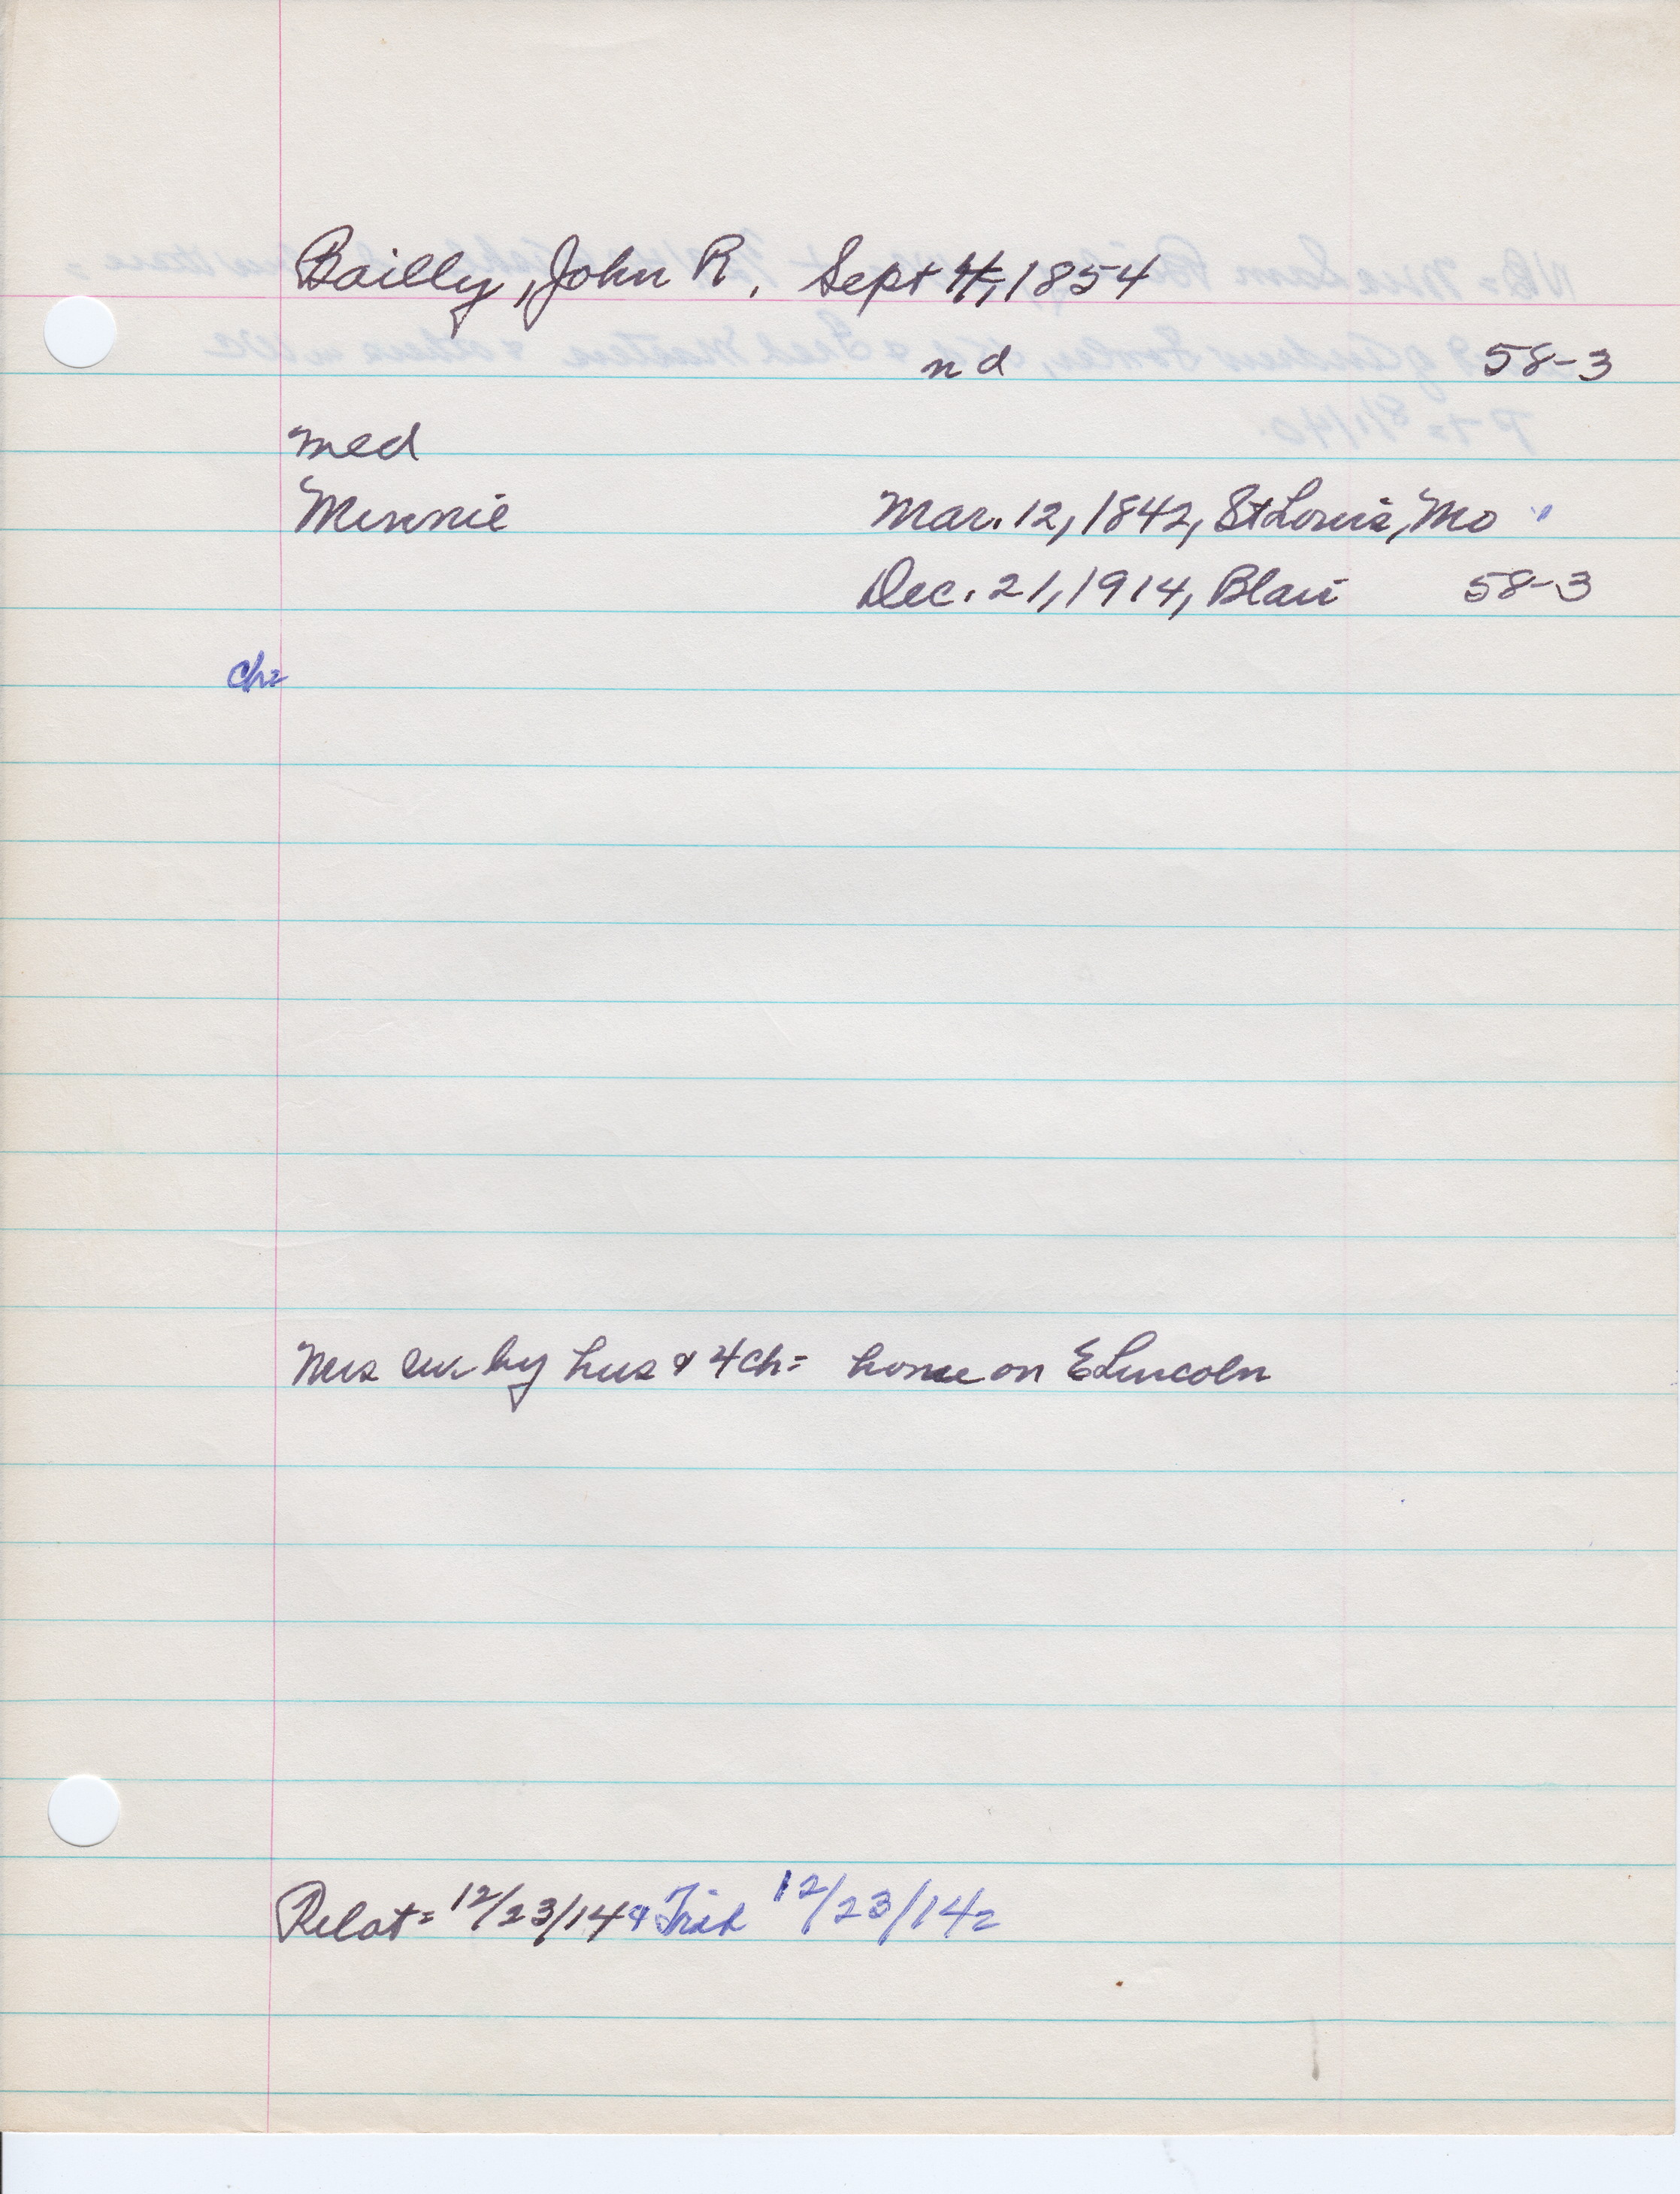 Bailly, John R. Sept 4, 1854
nd 58-3
med
Minnie Mar. 12, 1842, St Louis, Mo "
Dec. 21, 1914, Blair 58-3
ch=
Mrs sur by hus & 4 ch= home on E Lincoln
Pilot= 12/23/14 & Trib 12/23/14=